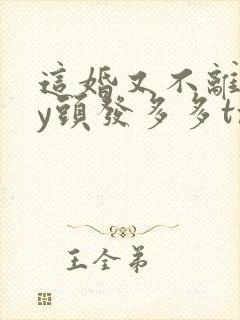 這婚又不離
y頭發多多t
王全弟